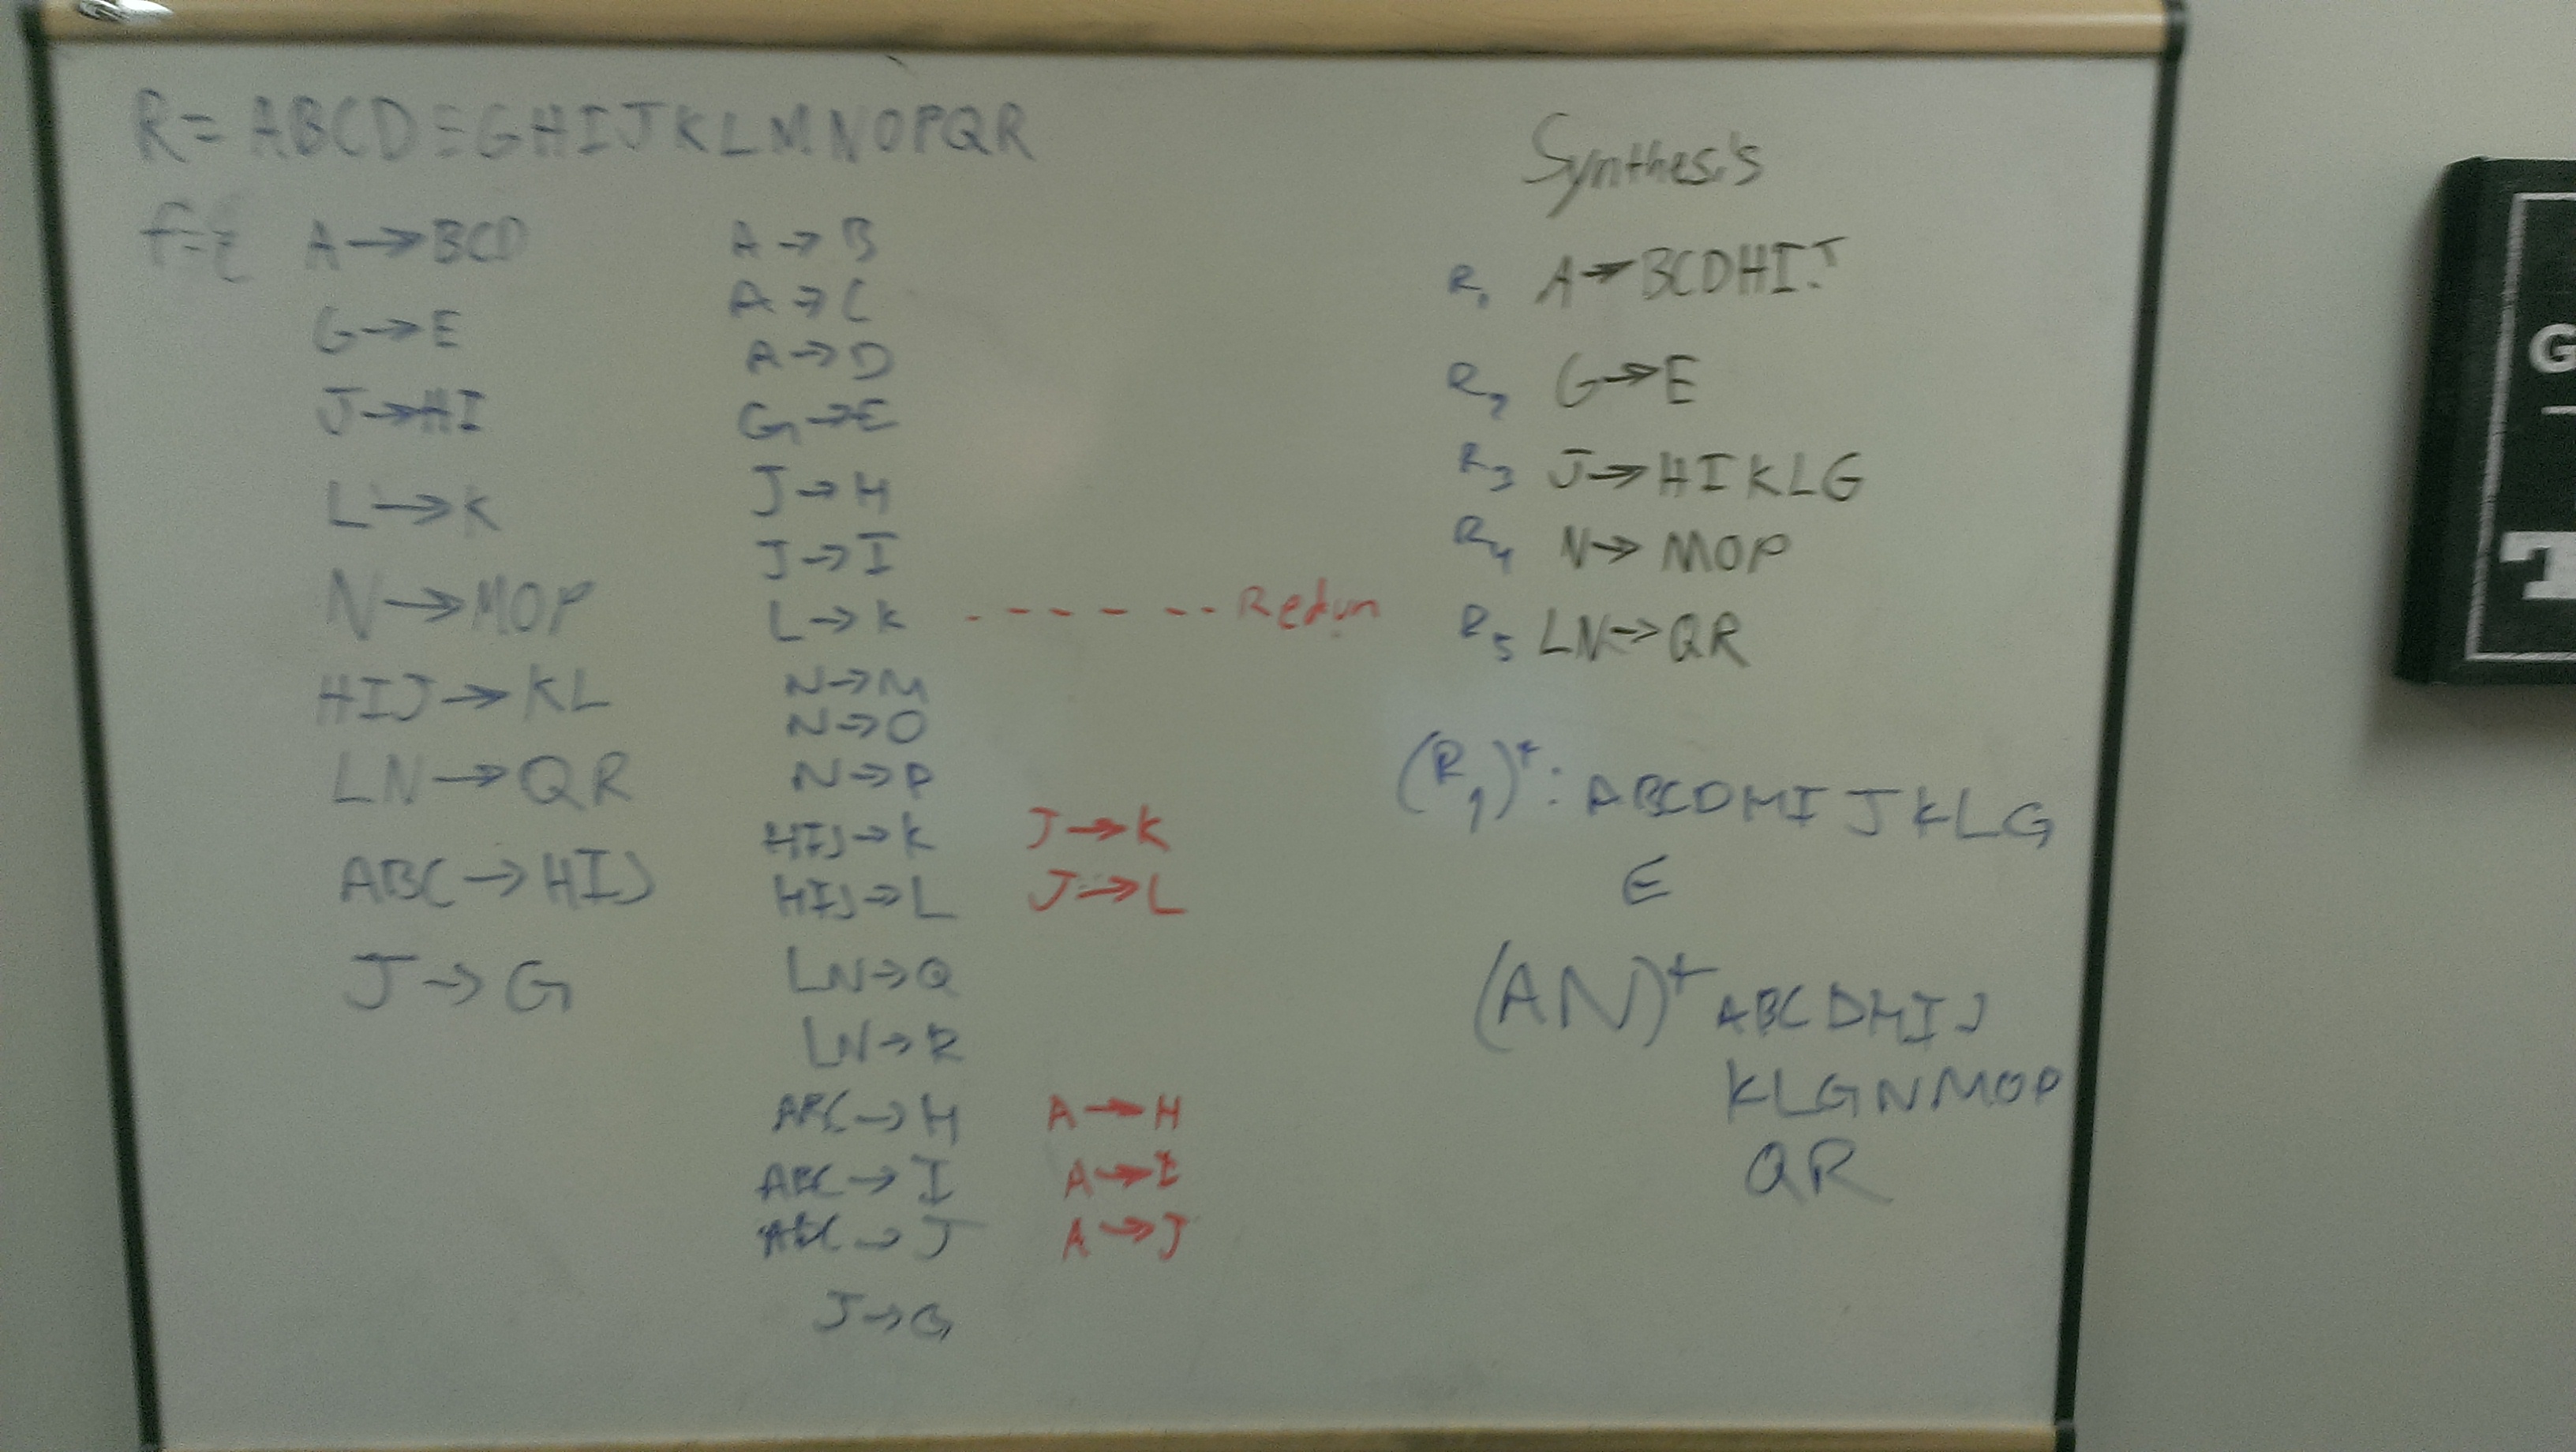 R = ABCDEGHIJKLMNOPQR
f={ A → BCD
G → E
J → HI
L → K
N → MOP
HIJ → KL
LN → QR
ABC → HIJ
J → G
A → B
A → C
A → D
G → E
J → H
J → I
L → K ------ Redun
N → M
N → O
N → P
HIJ → K J → K
HIJ → L J → L
LN → Q
LN → R
ABC → H A → H
ABC → I A → I
ABC → J A → J
J → G
Synthesis
R1 A → BCDHIJ
R2 G → E
R3 J → HIKLG
R4 N → MOP
R5 LN → QR
(R1)+: ABCDHIJKLG
E
(AN)+ ABCDHIJ
KLGNMOP
QR
G